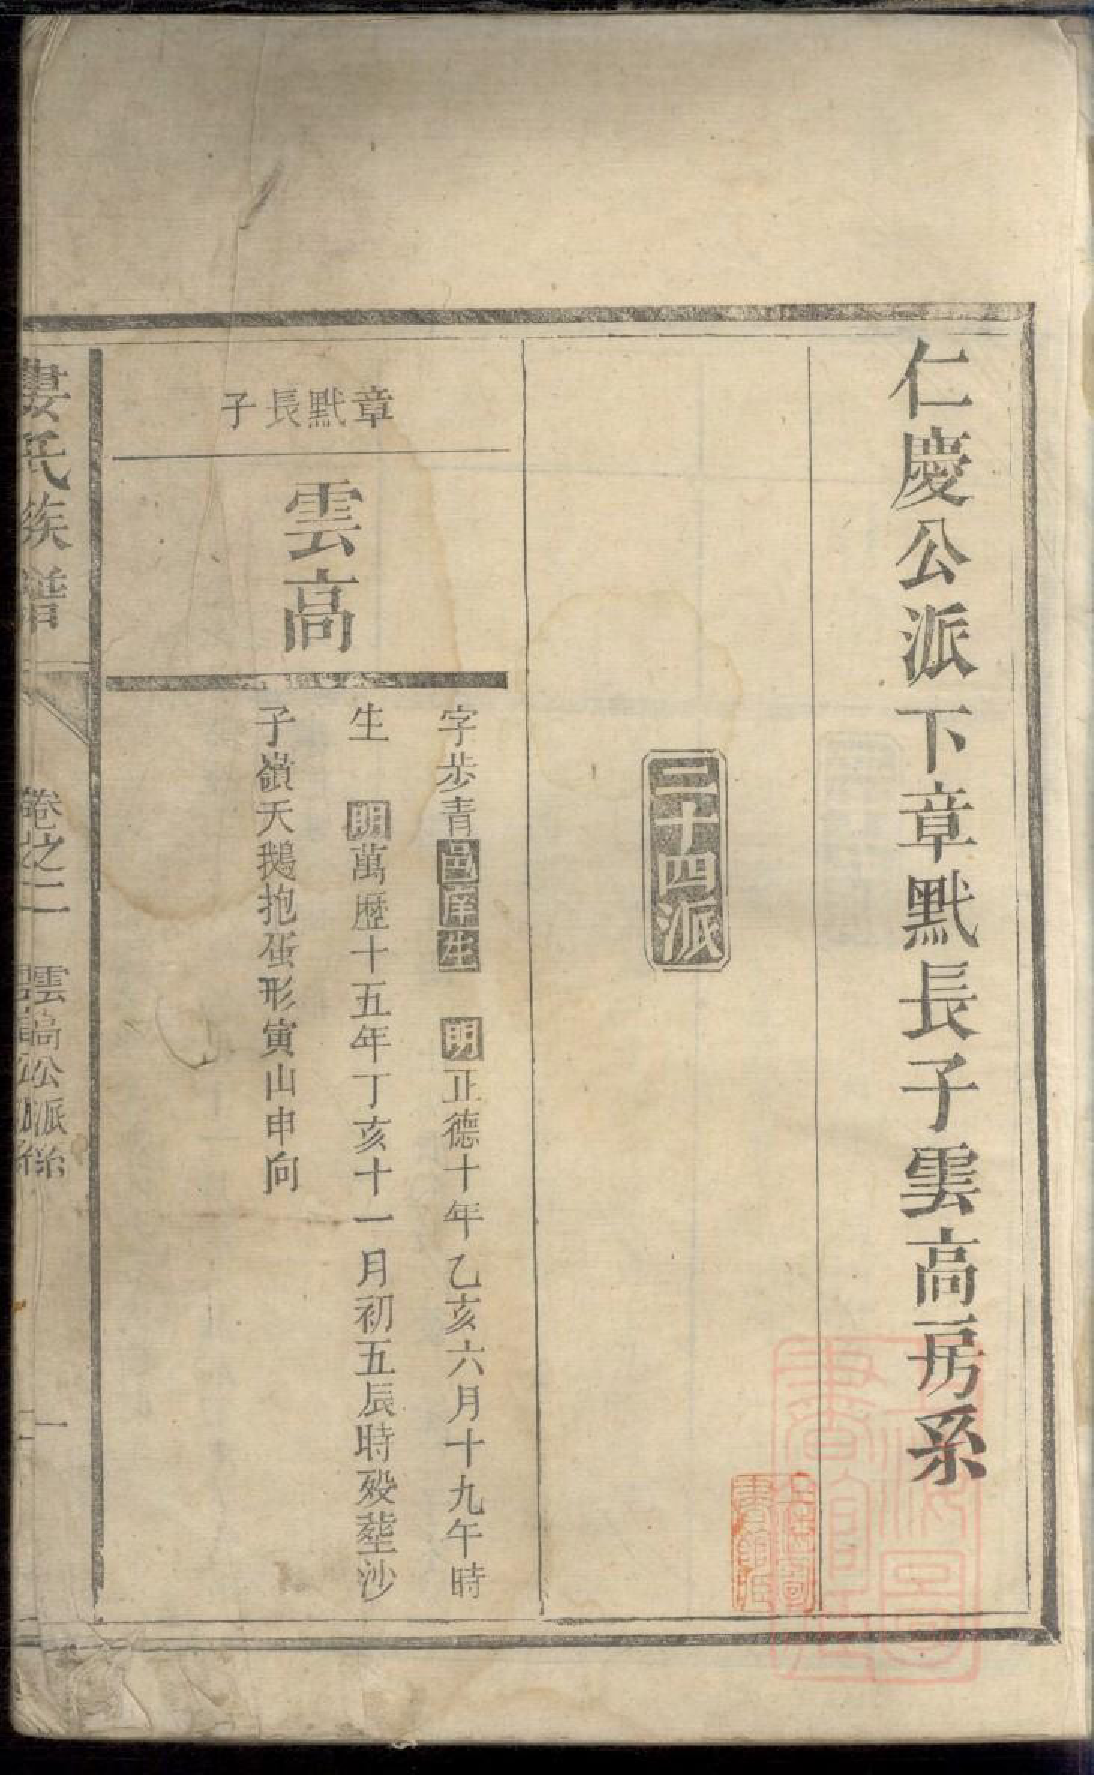 仁慶公派下章默長子雲高房系
二十四派
章默長子
雲高
字步青邑庠生　明正德十年乙亥六月十九午時
生　明萬歷十五年丁亥十一月初五辰時殁塟沙
子嶺天鵝抱蛋形寅山申向
婁氏族譜　卷之二　雲高公派系　一